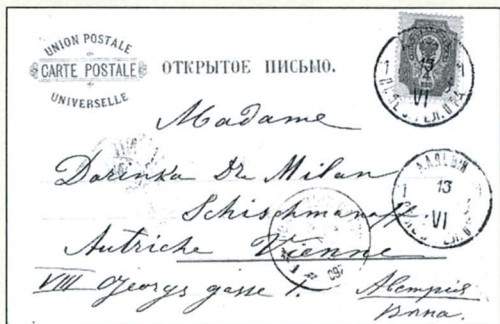 UNION POSTALE
CARTE POSTALE
UNIVERSELLE
ОТКРЫТОЕ ПИСЬМО.
Madame
Darinka Dr. Milan
Schischmanoff
Autriche Vienne
VIII Georgs gasse 1.
Австрія
Вѣна.
1 13 VI
1 13 VI